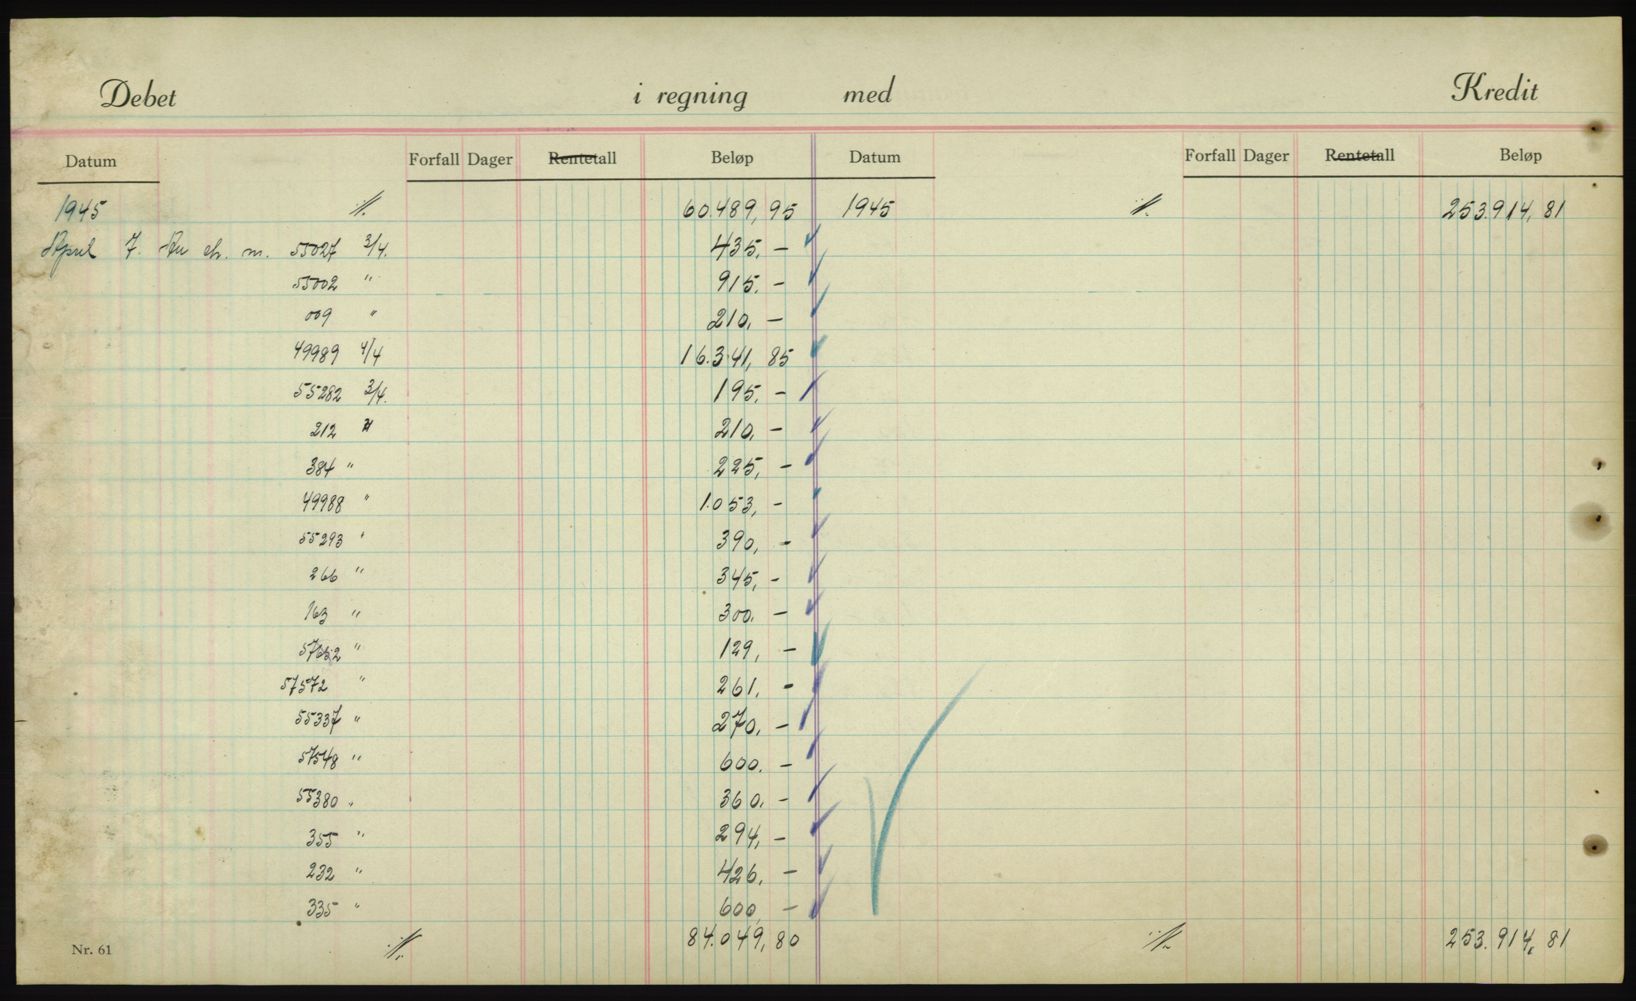 Debet i regning med Kredit
Datum Forfall Dager Rentetall Beløp Datum Forfall Dager Rentetall Beløp
1945 60.489,95 1945 253.914,81
April 7. m. 55027 3/4. 435,-
55002 " 915,-
009 " 210,-
49989 4/4 16.341,85
55282 3/4. 195,-
212 " 210,-
384 " 225,-
49988 " 1.053,-
55293 " 390,-
266 " 345,-
163 " 300,-
" 129,-
57572 " 261,-
55337 " 270,-
57548 " 600,-
55380 " 360,-
355 " 294,-
232 " 426,-
335 " 600,-
Nr. 61 84.049,80 253.914,81